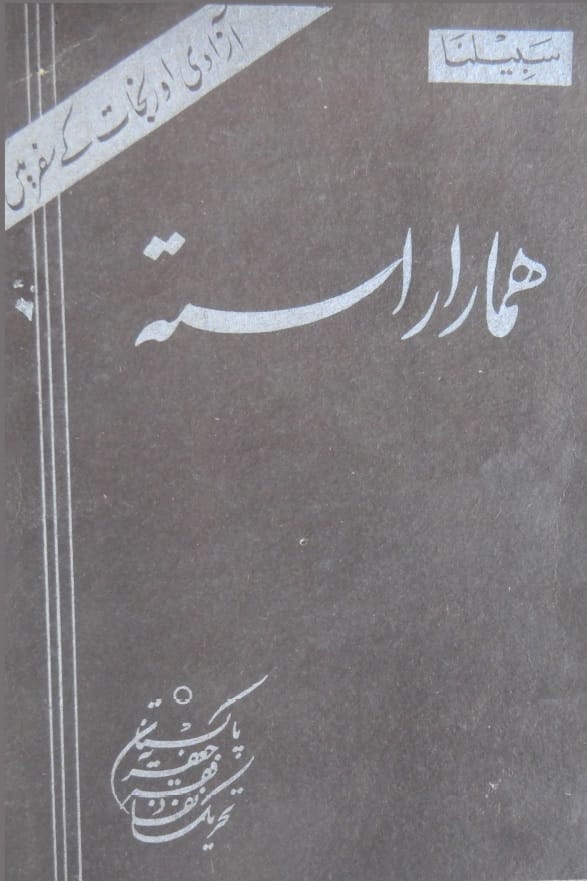 سَبِیْلُنَا
آزادی اور نجات کے سفر میں
ہمارا راستہ
تحریک نفاذ فقہ جعفریہ پاکستان